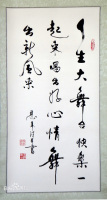 人生大舞台快乐一
起来唱出好心情舞
出新风采